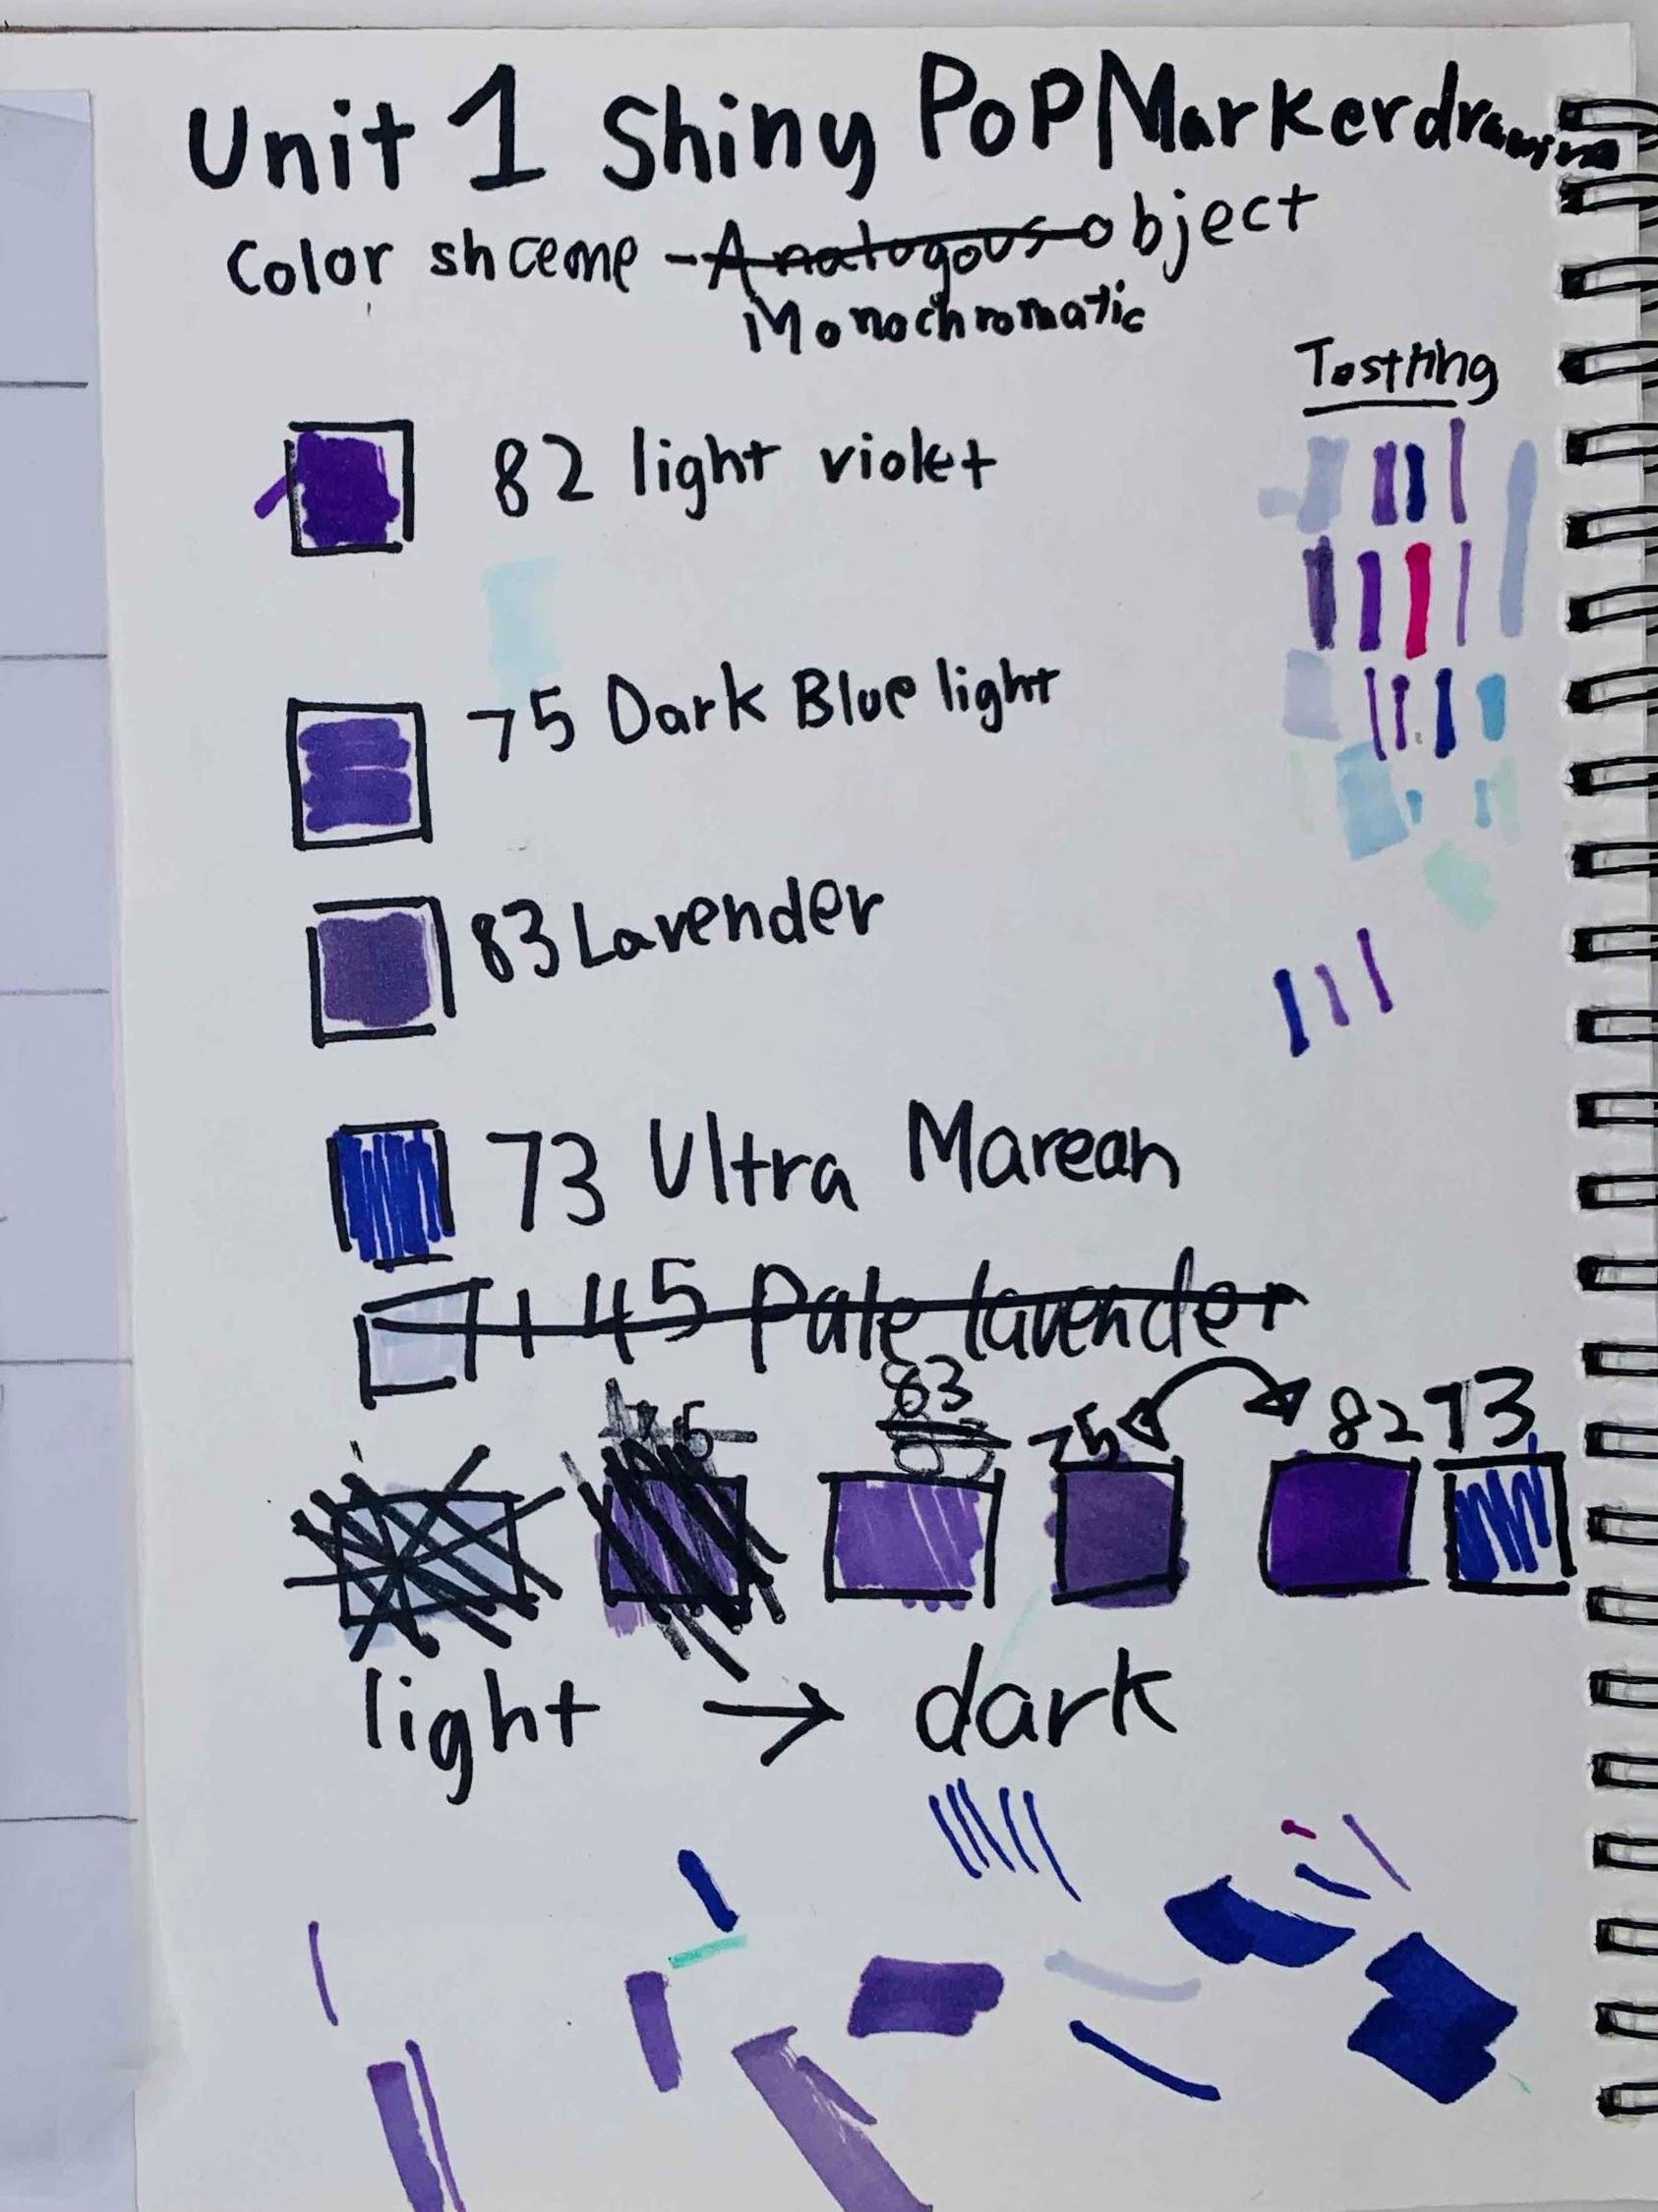 Unit 1 Shiny PoP Marker drawing
Color shceme - Analogous object
Monochromatic
Testing
82 light violet
75 Dark Blue light
83 Lavender
73 Ultra Marean
145 Pale lavender
83
75 82 73
light → dark